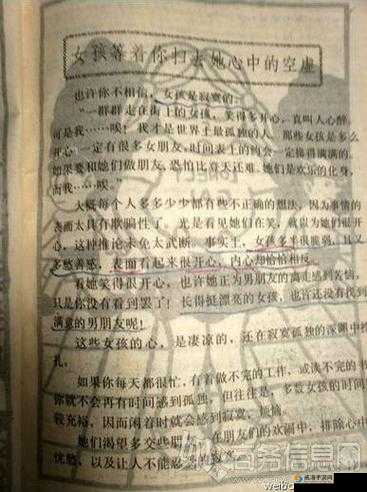 女孩等着你扫去她心中的空虚
也许你不相信，女孩是寂寞的：
“一群群走在街上的女孩，笑得多开心，真叫人心醉，
可是我……唉！我才是世界上最孤独的人。那些女孩是多么
开心，一定有很多女朋友，时间表上的约会一定排得满满的。
如果要和她们做朋友，恐怕比登天还难。她们是欢乐的化身，
而我……唉！”
大概每个人多多少少都有些不正确的想法，因为事情的
表面太具有欺骗性了。光是看见她们在笑，就以为她们很开
心，这种推论未免太武断。事实上，女孩多半很脆弱，且又
多愁善感，表面看起来很开心，内心却恰恰相反。
看她笑得很开心，也许她正为男朋友的离走感到苦恼，
只是你没有看到罢了！长得挺漂亮的女孩，也许还没有找到
满意的男朋友呢！
这些女孩的心，是凄凉的，还在寂寞孤独的深渊中挣
扎。
如果你每天都很忙，有着做不完的工作，或读不完的书
你就不会再有时间感到孤独。但往往是，多数女孩的时间
较充裕，因而闲着时就会感到寂寞、烦恼。
她们渴望多交些朋友，在朋友们的欢闹中，排除心中
忧愁，以及让人不能忍受的寂寞。